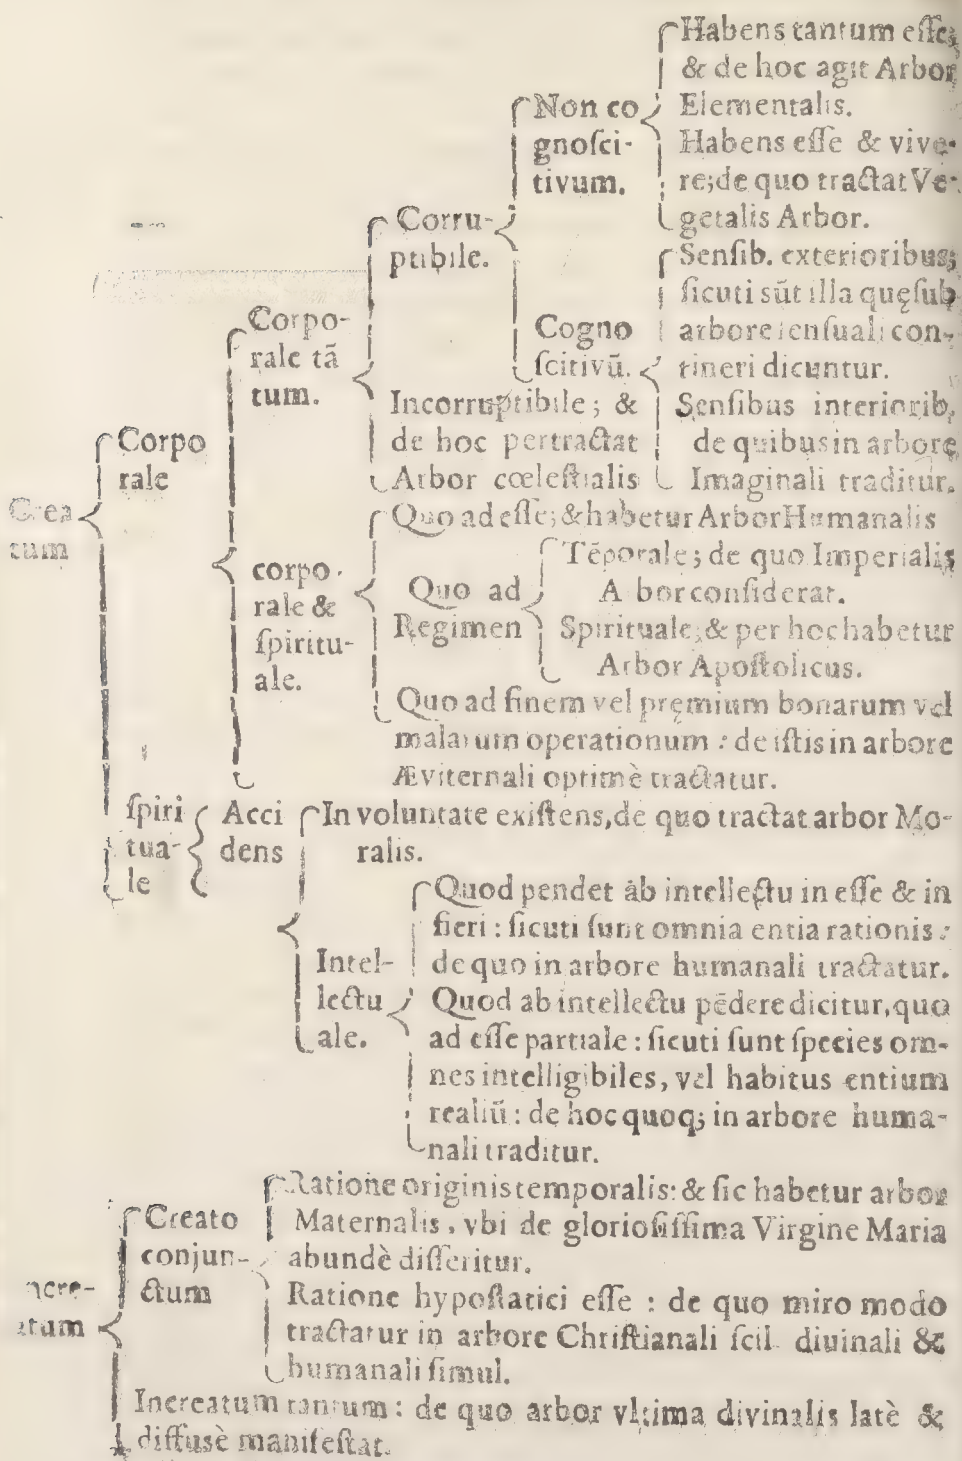 Habens tantum eſſe;
& de hoc agit Arbor
Elementalis.
Non co
gnoſci-
tivum.
Habens eſſe & vive-
re; de quo tractat Ve-
getalis Arbor.
Corru-
ptibile.
Senſib. exterioribus;
ſicuti sũt illa quę ſub
arbore ſenſuali con-
tineri dicuntur.
Cogno
ſcitivũ.
Corpo-
rale tã
tum.
Senſibus interiorib.
de quibus in arbore
Imaginali traditur.
Incorruptibile; &
de hoc pertractat
Arbor cœleſtialis
Corpo
rale
Crea
tum
Quo ad eſſe; & habetur Arbor Humanalis
corpo-
rale &
ſpiritu-
ale.
Quo ad
Regimen
Tẽporale; de quo Imperialis
A bor conſiderat.
Spirituale; & per hoc habetur
Arbor Apoſtolicus.
Quo ad finem vel pręmium bonarum vel
malarum operationum : de iſtis in arbore
Æviternali optimè tractatur.
ſpiri
tua-
le
Acci
dens
In voluntate exiſtens, de quo tractat arbor Mo-
ralis.
Intel-
lectu
ale.
Quod pendet ab intellectu in eſſe & in
fieri : ſicuti ſunt omnia entia rationis :
de quo in arbore humanali tractatur.
Quod ab intellectu pẽdere dicitur, quo
ad eſſe partiale : ſicuti ſunt ſpecies om-
nes intelligibiles, vel habitus entium
realiũ : de hoc quoq; in arbore huma-
nali traditur.
ncre-
atum
Creato
conjun-
ctum
Ratione originis temporalis: & ſic habetur arbor
Maternalis, vbi de glorioſiſſima Virgine Maria
abundè diſſeritur.
Ratione hypoſtatici eſſe : de quo miro modo
tractatur in arbore Chriſtianali ſcil. diuinali &
humanali ſimul.
Increatum tantum : de quo arbor vltima divinalis latè &
diffusè manifeſtat.